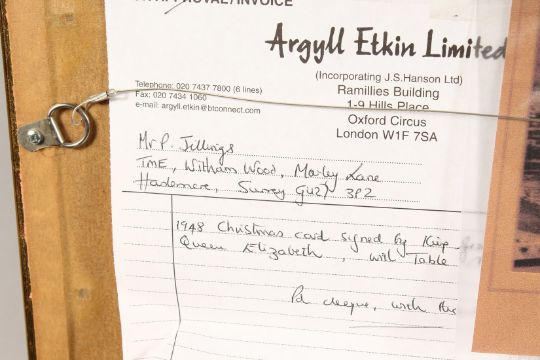 APPROVAL/INVOICE
Argyll Etkin Limited
(Incorporating J.S.Hanson Ltd)
Ramillies Building
1-9 Hills Place
Oxford Circus
London W1F 7SA
Telephone: 020 7437 7800 (6 lines)
Fax: 020 7434 1060
e-mail: argyll.etkin@btconnect.com
Mr P. Jillings
TME, Witham Wood, Marley Lane
Haslemere, Surrey GU27 3PZ
1948 Christmas card signed by King
Queen Elizabeth, with Table
Pd cheque, with thx